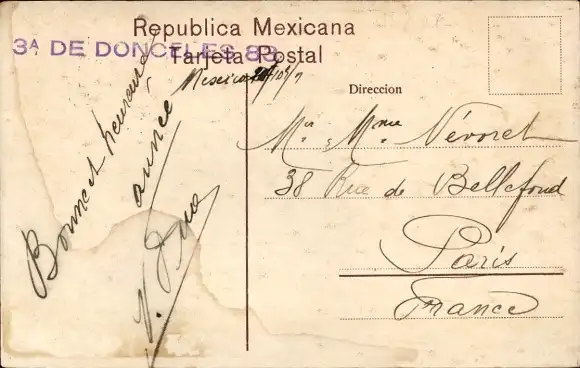 Republica Mexicana
3ᴬ DE DONCELES 83.
Tarjeta Postal
Mexico
Direccion
Bonne et heureuse
année
Mr. Mme Névoret
38 Rue de Bellefond
Paris
France